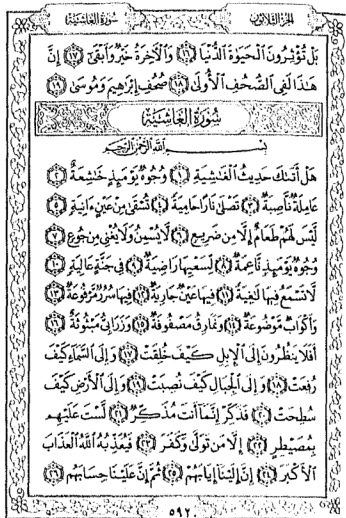 سورة الغاشية الجزء الثلاثون
بَلْ تُؤْثِرُونَ الْحَيَوٰةَ الدُّنْيَا ١٦ وَالْآخِرَةُ خَيْرٌ وَأَبْقَىٰ ١٧ إِنَّ
هَٰذَا لَفِي الصُّحُفِ الْأُولَىٰ ١٨ صُحُفِ إِبْرَٰهِيمَ وَمُوسَىٰ ١٩
سُورَةُ الْغَاشِيَةِ
بِسْمِ اللَّهِ الرَّحْمَٰنِ الرَّحِيمِ
هَلْ أَتَىٰكَ حَدِيثُ الْغَٰشِيَةِ ١ وُجُوهٌ يَوْمَئِذٍ خَٰشِعَةٌ ٢
عَامِلَةٌ نَّاصِبَةٌ ٣ تَصْلَىٰ نَارًا حَامِيَةً ٤ تُسْقَىٰ مِنْ عَيْنٍ ءَانِيَةٍ ٥
لَّيْسَ لَهُمْ طَعَامٌ إِلَّا مِن ضَرِيعٍ ٦ لَّا يُسْمِنُ وَلَا يُغْنِي مِن جُوعٍ ٧
وُجُوهٌ يَوْمَئِذٍ نَّاعِمَةٌ ٨ لِّسَعْيِهَا رَاضِيَةٌ ٩ فِي جَنَّةٍ عَالِيَةٍ ١٠
لَّا تَسْمَعُ فِيهَا لَٰغِيَةً ١١ فِيهَا عَيْنٌ جَارِيَةٌ ١٢ فِيهَا سُرُرٌ مَّرْفُوعَةٌ ١٣
وَأَكْوَابٌ مَّوْضُوعَةٌ ١٤ وَنَمَارِقُ مَصْفُوفَةٌ ١٥ وَزَرَابِيُّ مَبْثُوثَةٌ ١٦
أَفَلَا يَنظُرُونَ إِلَى الْإِبِلِ كَيْفَ خُلِقَتْ ١٧ وَإِلَى السَّمَاءِ كَيْفَ
رُفِعَتْ ١٨ وَإِلَى الْجِبَالِ كَيْفَ نُصِبَتْ ١٩ وَإِلَى الْأَرْضِ كَيْفَ
سُطِحَتْ ٢٠ فَذَكِّرْ إِنَّمَا أَنتَ مُذَكِّرٌ ٢١ لَّسْتَ عَلَيْهِم
بِمُصَيْطِرٍ ٢٢ إِلَّا مَن تَوَلَّىٰ وَكَفَرَ ٢٣ فَيُعَذِّبُهُ اللَّهُ الْعَذَابَ
الْأَكْبَرَ ٢٤ إِنَّ إِلَيْنَا إِيَابَهُمْ ٢٥ ثُمَّ إِنَّ عَلَيْنَا حِسَابَهُم ٢٦
٥٩٢